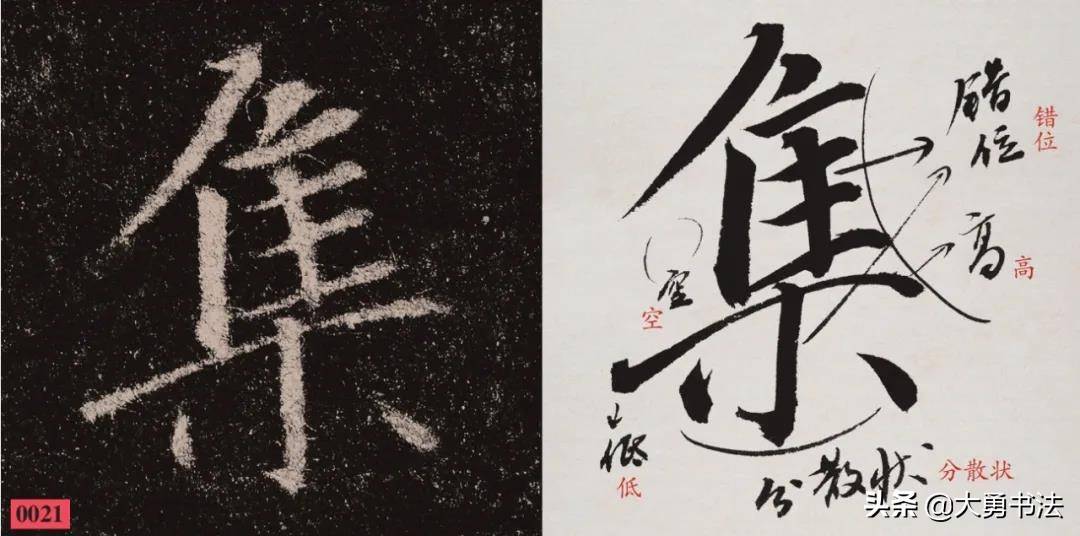 集
0021
集
錯位
错位
高
高
空
空
低
低
分散状
分散状
头条 @大勇书法